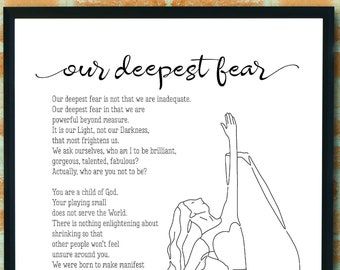 our deepest fear
Our deepest fear is not that we are inadequate.
Our deepest fear in that we are
powerful beyond measure.
It is our Light, not our Darkness,
that most frightens us.
We ask ourselves, who am I to be brilliant,
gorgeous, talented, fabulous?
Actually, who are you not to be?
You are a child of God.
Your playing small
does not serve the World.
There is nothing enlightening about
shrinking so that
other people won't feel
unsure around you.
We were born to make manifest